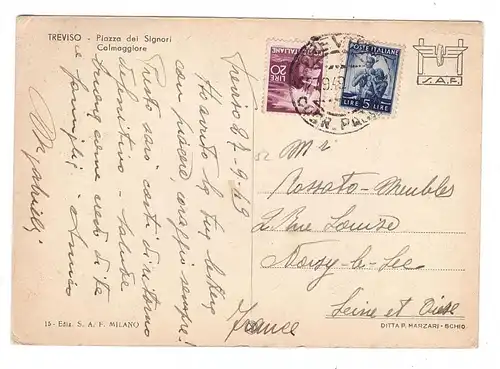 TREVISO - Piazza dei Signori
Calmaggiore
Treviso 27-9-49
Ho avuto la tua lettera
con piacere coraggio sempre!
Presto sarò costì di ritorno
definitivo - Salute
a famiglia - Amico
LIRE 20
ITALIANE
POSTE ITALIANE
LIRE 5 LIRE
S.A.F.
Mr
Rossato - Meubles
2 Rue Louise
Noisy-le-Sec
Seine et Oise
France
15 - Ediz. S. A. F. MILANO
DITTA P. MARZARI - SCHIO